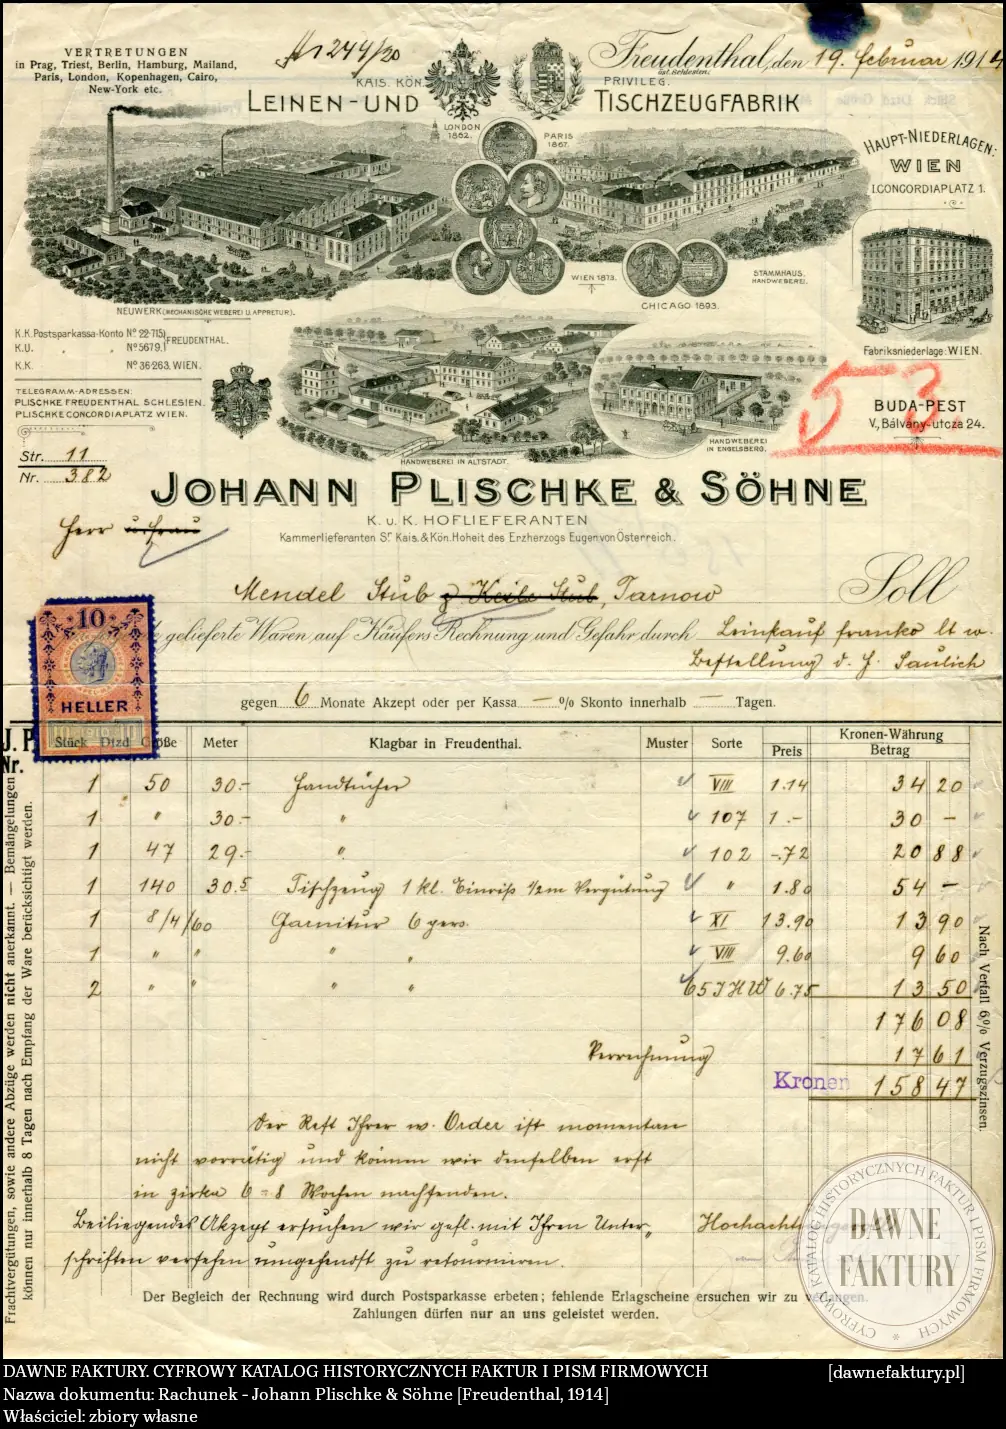 VERTRETUNGEN
in Prag, Triest, Berlin, Hamburg, Mailand,
Paris, London, Kopenhagen, Cairo,
New-York etc.
Nr 244/20
Freudenthal, den 19. februar 1914
öst. Schlesien.
KAIS. KÖN. PRIVILEG.
LEINEN- UND TISCHZEUGFABRIK
LONDON 1862.
PARIS 1867.
HAUPT-NIEDERLAGEN:
WIEN
I. CONCORDIAPLATZ 1.
WIEN 1873.
CHICAGO 1893.
STAMMHAUS.
HANDWEBEREI.
NEUWERK (MECHANISCHE WEBEREI U. APPRETUR).
K.K. Postsparkassa-Konto No 22·715 FREUDENTHAL.
K.U. " " No 5679.
K.K. No 36·263, WIEN.
Fabriksniederlage: WIEN.
TELEGRAMM-ADRESSEN:
PLISCHKE FREUDENTHAL SCHLESIEN.
PLISCHKE CONCORDIAPLATZ WIEN.
53
BUDA-PEST
V., Bálvány-utcza 24.
HANDWEBEREI
IN ENGELSBERG.
HANDWEBEREI IN ALTSTADT.
Str. 11
Nr. 382
JOHANN PLISCHKE & SÖHNE
K. u. K. HOFLIEFERANTEN
Kammerlieferanten Sr Kais. & Kön. Hoheit des Erzherzogs Eugen von Österreich.
Herr u. Frau
Mendel Stub & Keile Stub, Tarnow
Soll
gelieferte Waren auf Käufers Rechnung und Gefahr durch Leinkauf franko lt w.
Bestellung d. H. Saulich
10
HELLER
1910
gegen 6 Monate Akzept oder per Kassa — % Skonto innerhalb — Tagen.
J. P.
Nr.
Stück Dtzd Größe Meter Klagbar in Freudenthal. Muster Sorte Preis Kronen-Währung Betrag
1 50 30.- Handtücher VIII 1.14 34 20
1 " 30.- " 107 1.- 30 -
1 47 29.- " 102 -.72 20 88
1 140 30.5 Tischzeug 1 kl. Einriß 1/2m Vergütung " 1.80 54 -
1 8/4/60 Garnitur 6 pers. XI 13.90 13 90
1 " " " " VIII 9.60 9 60
2 " " " " 65 JHW 6.75 13 50
176 08
Verrechnung 17 61
Kronen 158 47
Der Rest Ihrer w. Order ist momentan
nicht vorrätig und können wir denselben erst
in zirka 6 - 8 Wochen nachsenden.
Beiliegendes Akzept ersuchen wir gefl. mit Ihren Unter-
schriften versehen umgehendst zu retournieren.
Hochachtungsvoll
Der Begleich der Rechnung wird durch Postsparkasse erbeten; fehlende Erlagscheine ersuchen wir zu verlangen.
Zahlungen dürfen nur an uns geleistet werden.
Frachtvergütungen, sowie andere Abzüge werden nicht anerkannt. — Bemängelungen
können nur innerhalb 8 Tagen nach Empfang der Ware berücksichtigt werden.
Nach Verfall 6% Verzugszinsen.
CYFROWY KATALOG HISTORYCZNYCH FAKTUR I PISM FIRMOWYCH
DAWNE
FAKTURY
DAWNE FAKTURY. CYFROWY KATALOG HISTORYCZNYCH FAKTUR I PISM FIRMOWYCH [dawnefaktury.pl]
Nazwa dokumentu: Rachunek - Johann Plischke & Söhne [Freudenthal, 1914]
Właściciel: zbiory własne